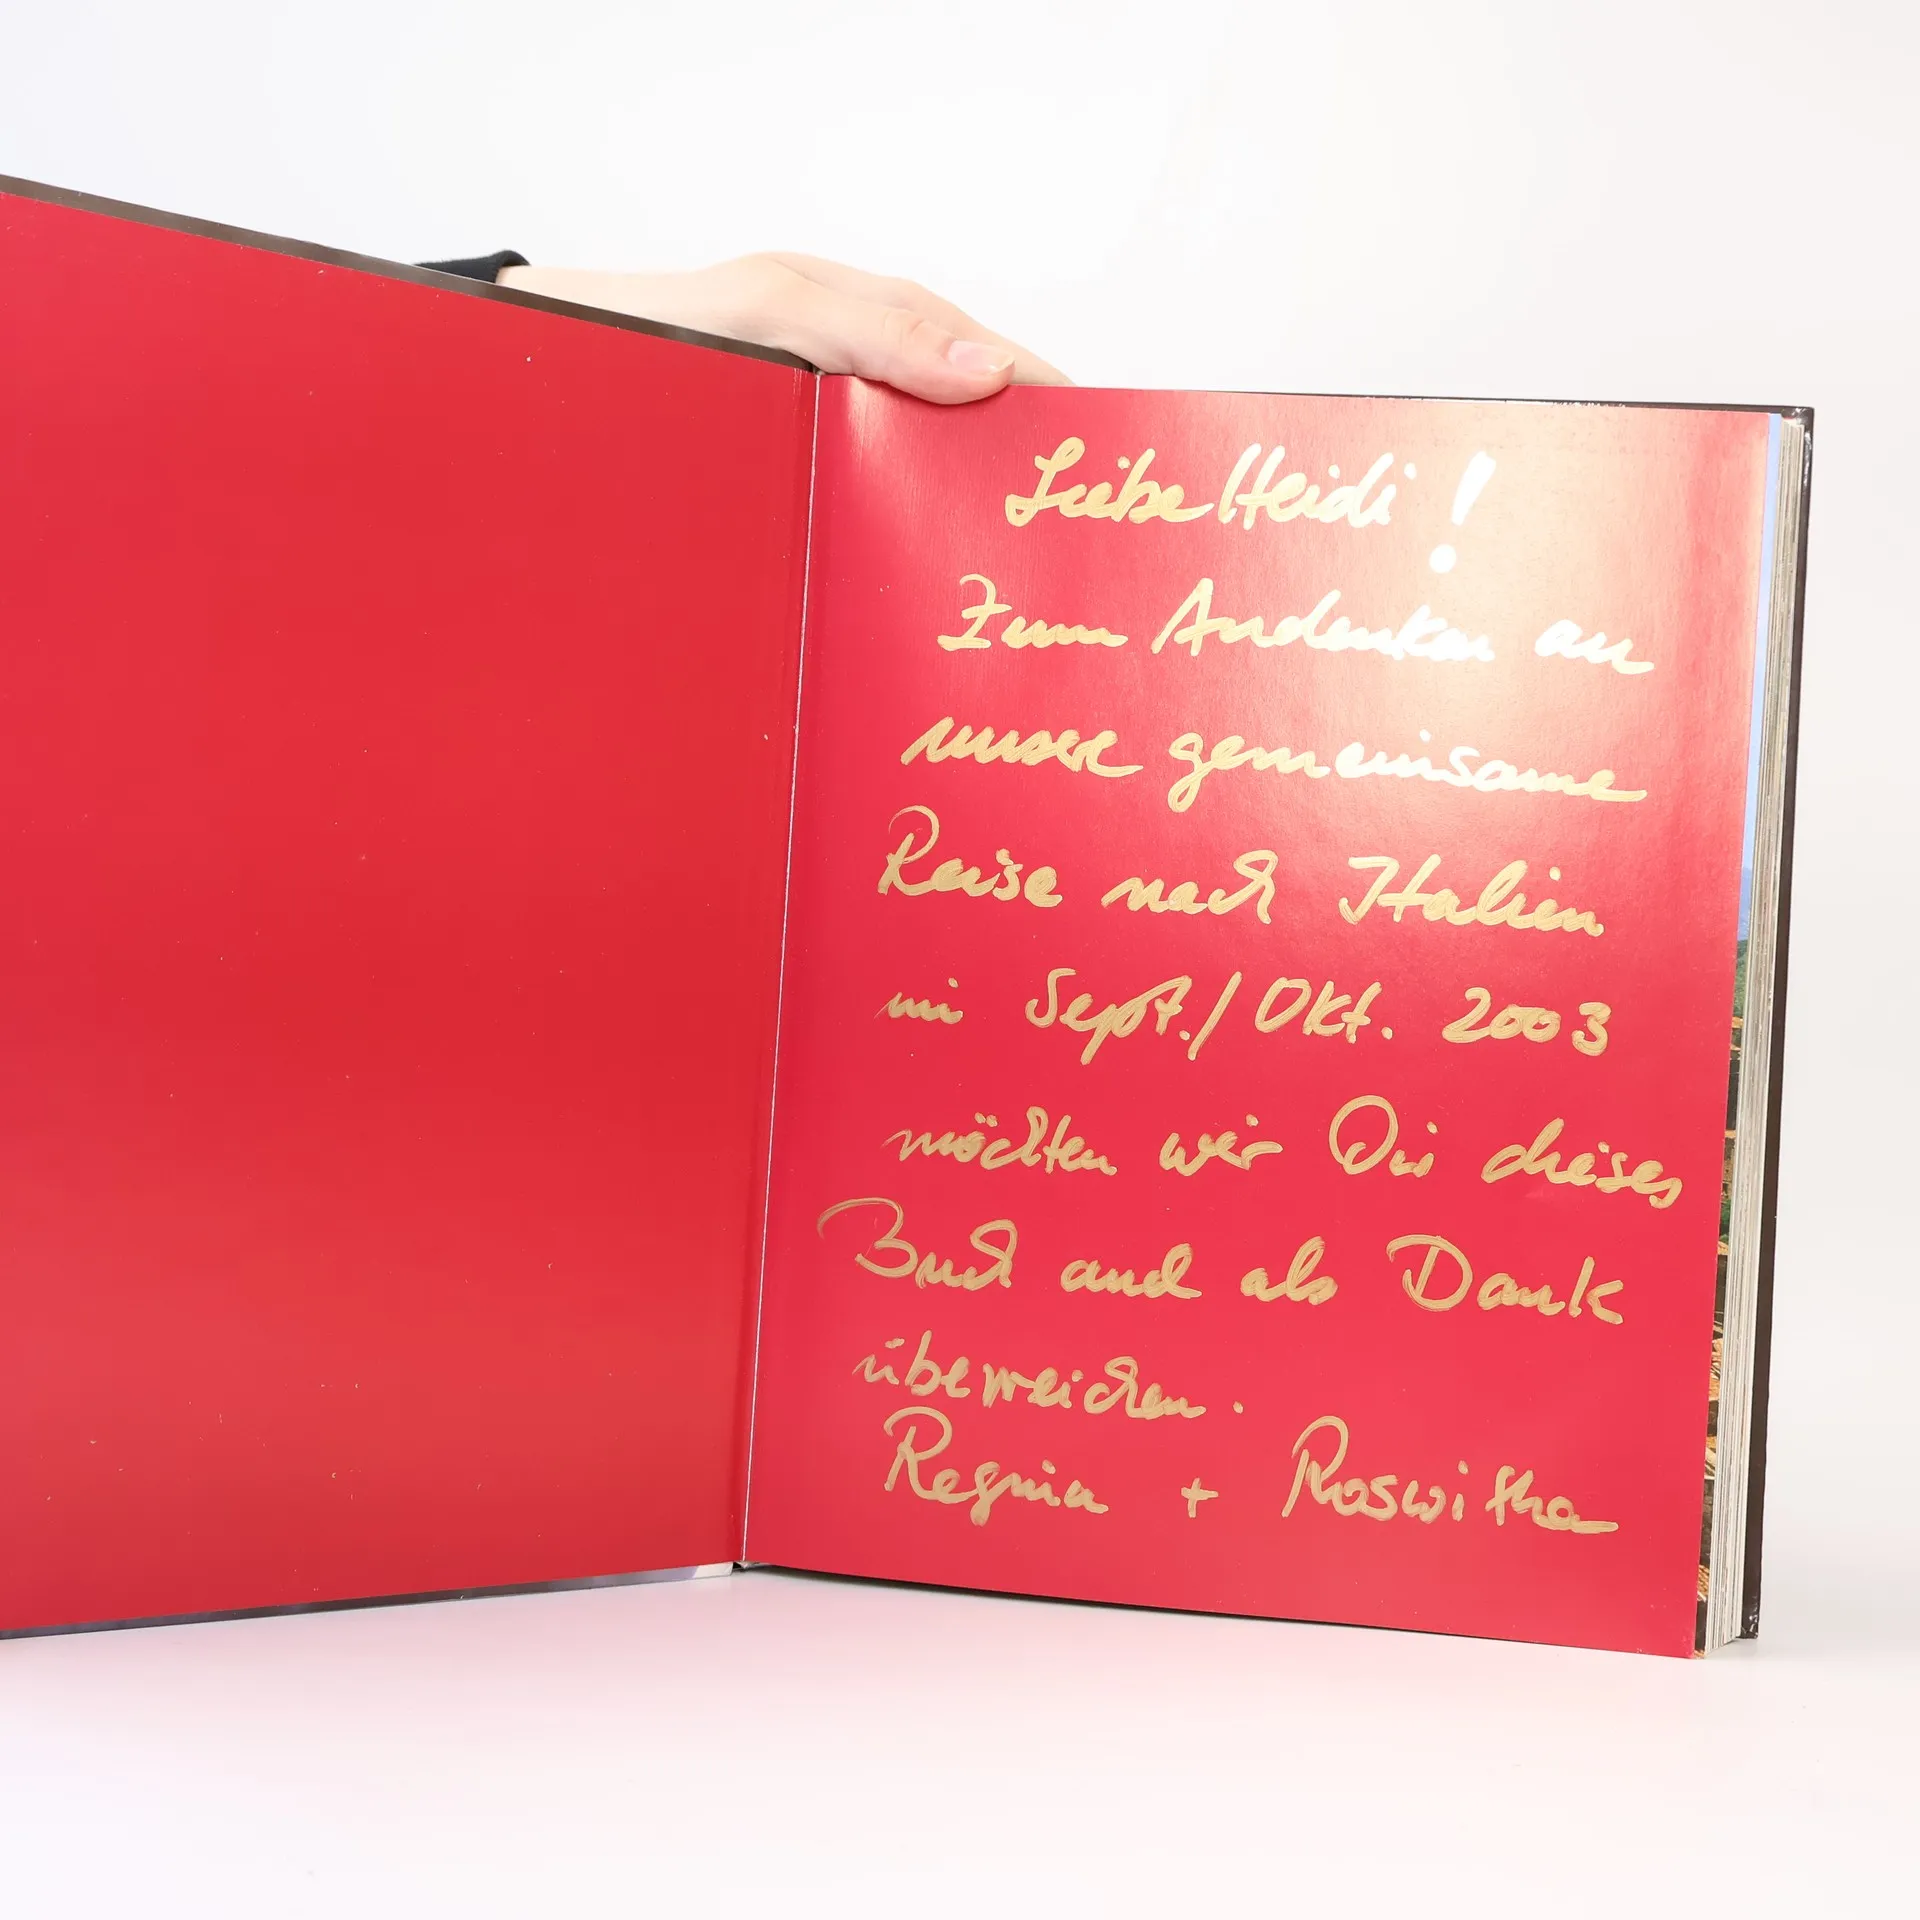 Liebe Heidi!
Zum Andenken an
unsere gemeinsame
Reise nach Italien
im Sept./Okt. 2003
möchten wir Dir dieses
Buch und als Dank
überreichen.
Regina + Roswitha